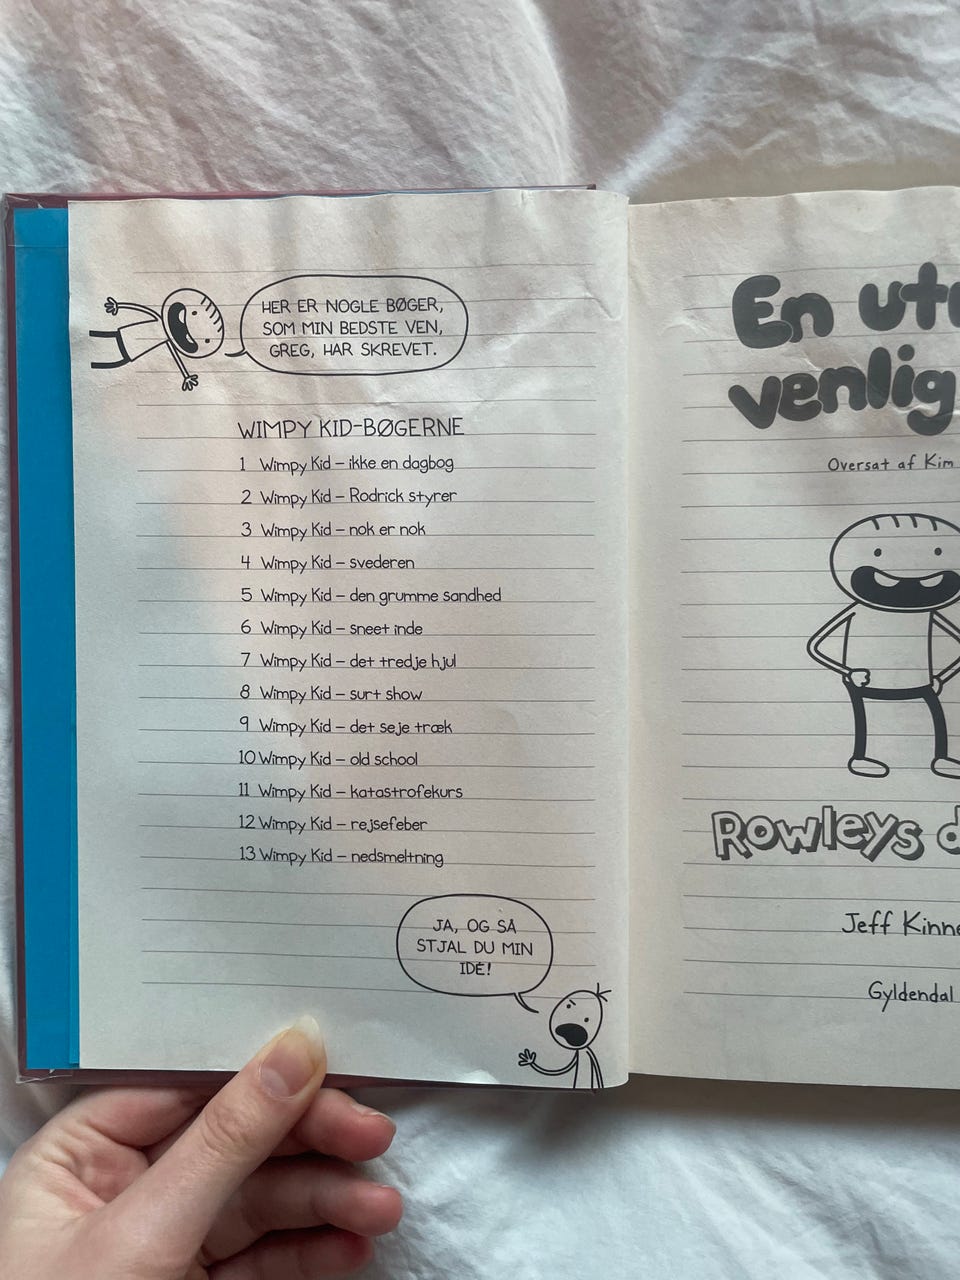 HER ER NOGLE BØGER,
SOM MIN BEDSTE VEN,
GREG, HAR SKREVET.
WIMPY KID-BØGERNE
1 Wimpy Kid – ikke en dagbog
2 Wimpy Kid – Rodrick styrer
3 Wimpy Kid – nok er nok
4 Wimpy Kid – svederen
5 Wimpy Kid – den grumme sandhed
6 Wimpy Kid – sneet inde
7 Wimpy Kid – det tredje hjul
8 Wimpy Kid – surt show
9 Wimpy Kid – det seje træk
10 Wimpy Kid – old school
11 Wimpy Kid – katastrofekurs
12 Wimpy Kid – rejsefeber
13 Wimpy Kid – nedsmeltning
JA, OG SÅ
STJAL DU MIN
IDÉ!
En
venlig
Oversat af Kim
Rowleys
Jeff
Gyldendal